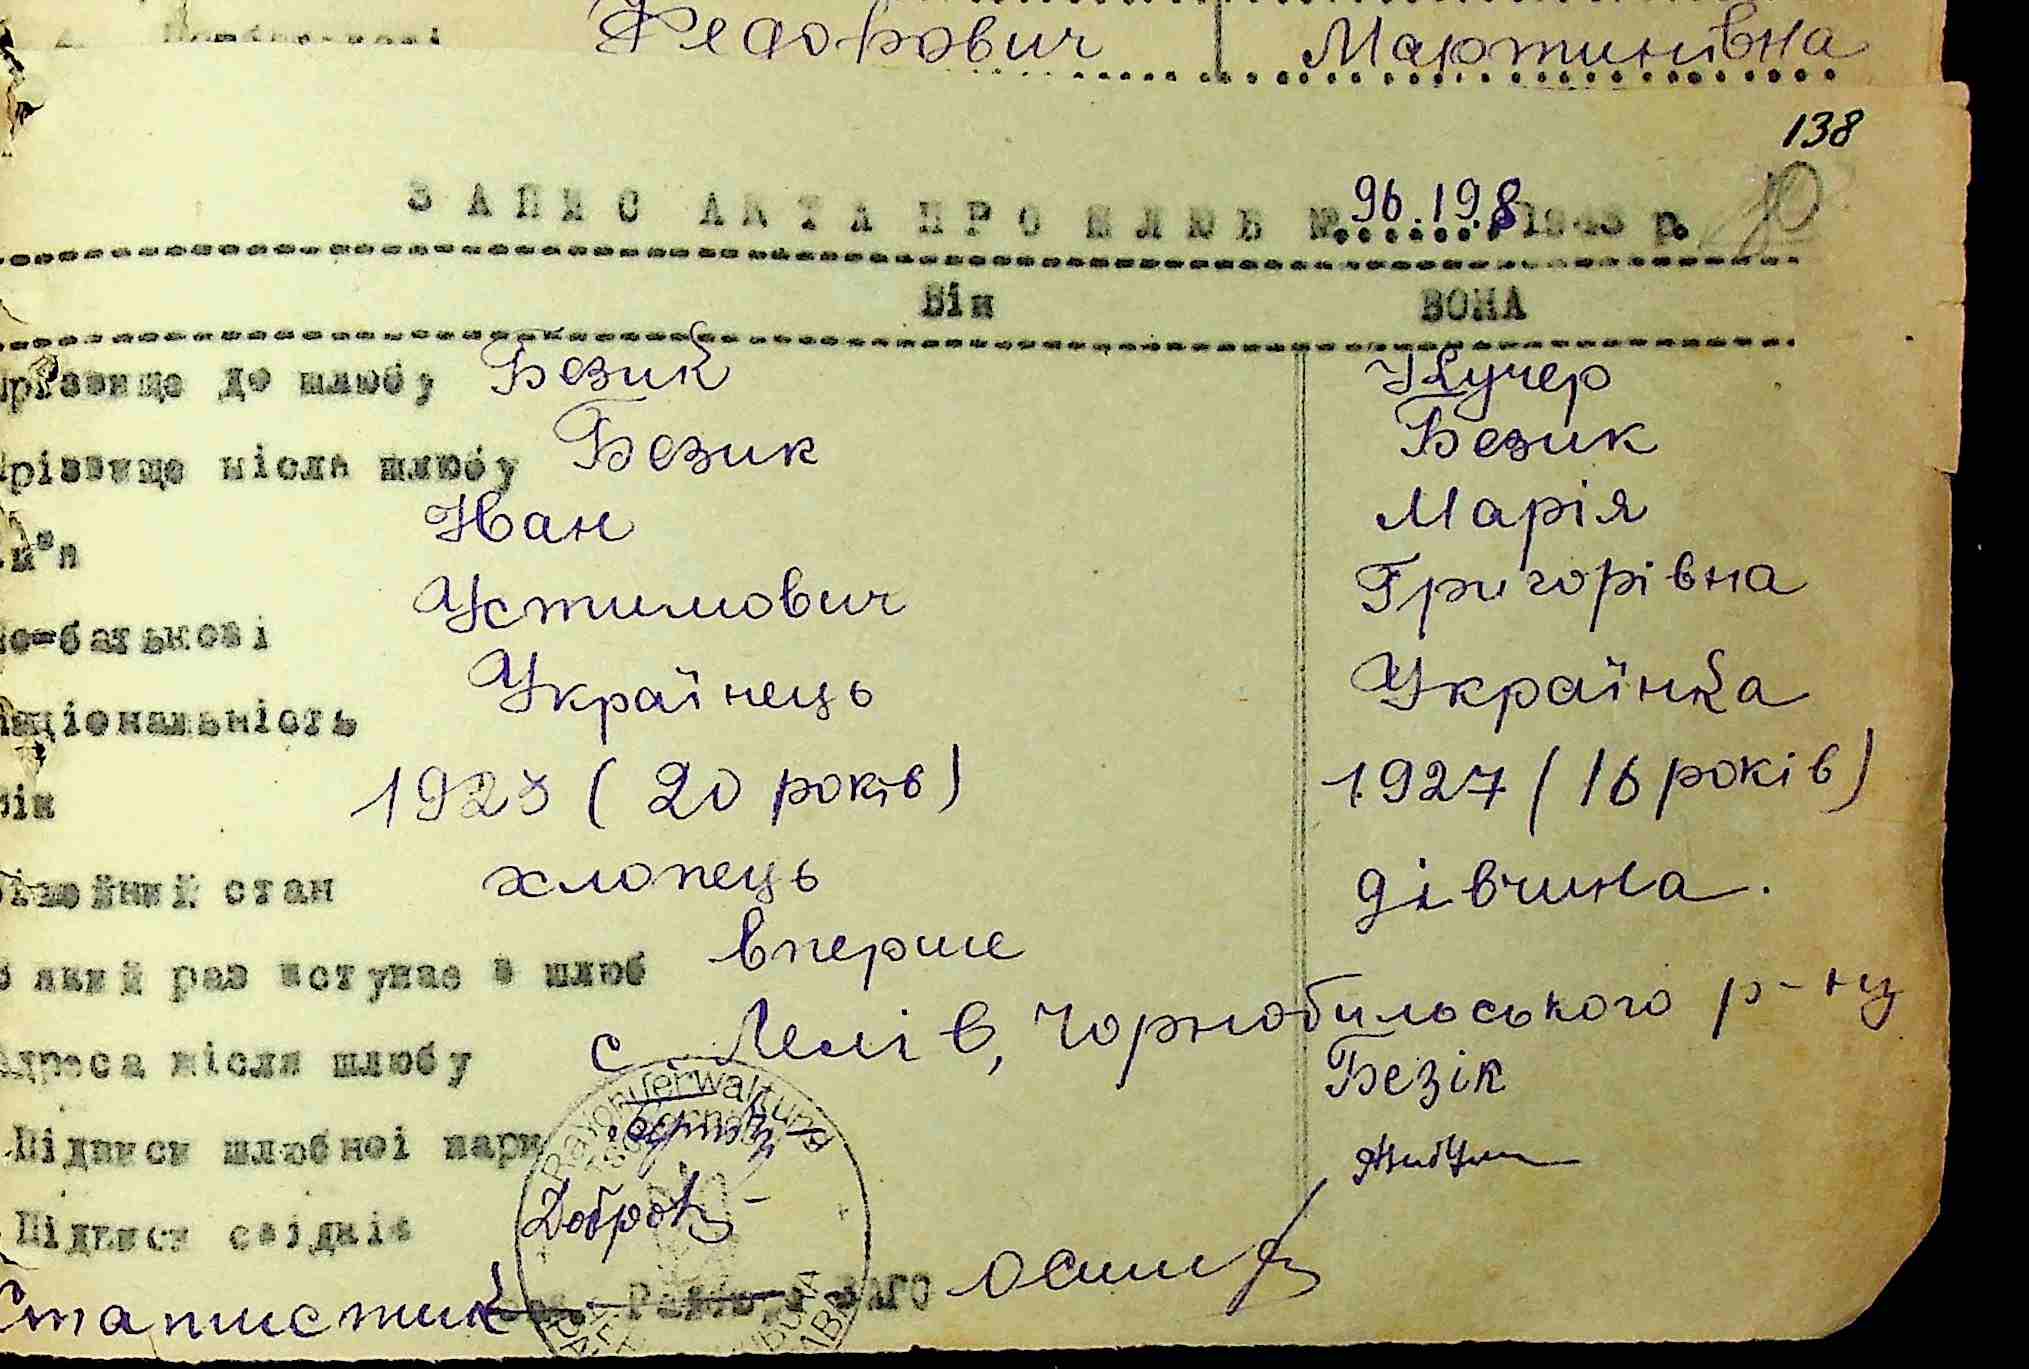 Федорович Мартинівна
138
ЗАПИС АКТА ПРО ШЛЮБ № 96.19.8 1943 р.
Він ВОНА
Прізвище до шлюбу Безик Кучер
Прізвище після шлюбу Безик Безик
Ім'я Іван Марія
По-батькові Устимович Григорівна
Національність Українець Українка
Вік 1923 (20 років) 1927 (16 років)
стан хлопець дівчина.
В який раз вступає в шлюб вперше
Адреса після шлюбу с. Лелів, Чорнобильського р-ну
Підписи шлюбної пари Безік
Підписи свідків
Статистик ЗАГС
Rayonverwaltung